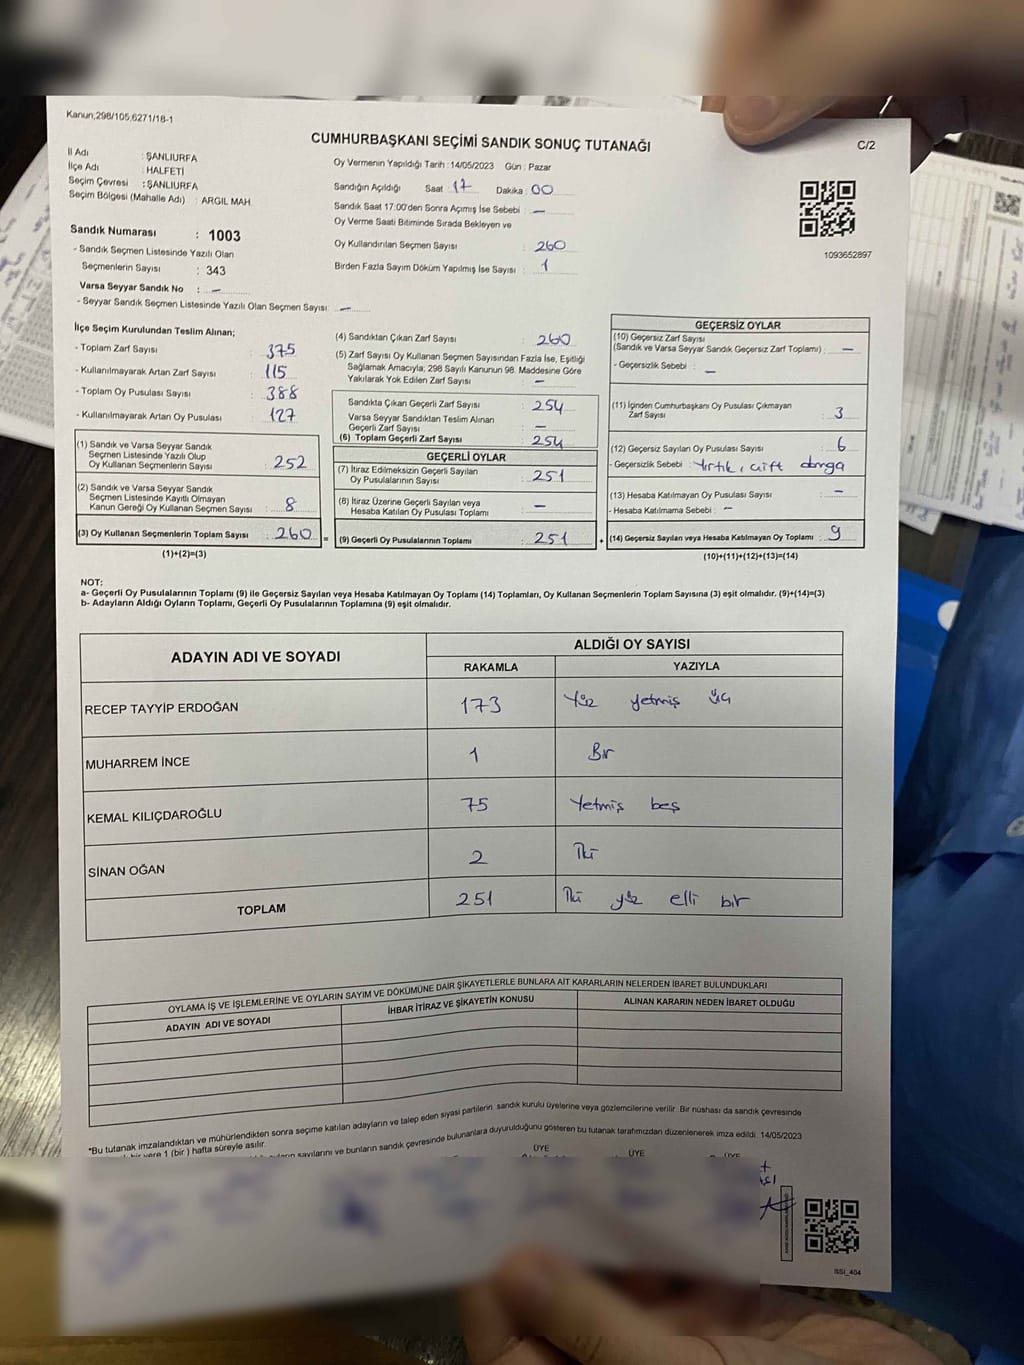 Kanun;298/105,6271/18-1
CUMHURBAŞKANI SEÇİMİ SANDIK SONUÇ TUTANAĞI
C/2
İl Adı : ŞANLIURFA
İlçe Adı : HALFETİ
Seçim Çevresi : ŞANLIURFA
Seçim Bölgesi (Mahalle Adı) : ARGIL MAH.
Sandık Numarası : 1003
- Sandık Seçmen Listesinde Yazılı Olan
Seçmenlerin Sayısı : 343
Varsa Seyyar Sandık No : –
- Seyyar Sandık Seçmen Listesinde Yazılı Olan Seçmen Sayısı: –
Oy Vermenin Yapıldığı Tarih : 14/05/2023 Gün : Pazar
Sandığın Açıldığı Saat : 17 Dakika : 00
Sandık Saat 17:00'den Sonra Açımış İse Sebebi : –
Oy Verme Saati Bitiminde Sırada Bekleyen ve
Oy Kullandırılan Seçmen Sayısı : 260
Birden Fazla Sayım Döküm Yapılmış İse Sayısı : 1
1093652897
İlçe Seçim Kurulundan Teslim Alınan;
- Toplam Zarf Sayısı : 375
- Kullanılmayarak Artan Zarf Sayısı : 115
- Toplam Oy Pusulası Sayısı : 388
- Kullanılmayarak Artan Oy Pusulası : 127
(1) Sandık ve Varsa Seyyar Sandık
Seçmen Listesinde Yazılı Olup
Oy Kullanan Seçmenlerin Sayısı : 252
(2) Sandık ve Varsa Seyyar Sandık
Seçmen Listesinde Kayıtlı Olmayan
Kanun Gereği Oy Kullanan Seçmen Sayısı : 8
(3) Oy Kullanan Seçmenlerin Toplam Sayısı : 260 =
(1)+(2)=(3)
(4) Sandıktan Çıkan Zarf Sayısı : 260
(5) Zarf Sayısı Oy Kullanan Seçmen Sayısından Fazla İse, Eşitliği
Sağlamak Amacıyla; 298 Sayılı Kanunun 98. Maddesine Göre
Yakılarak Yok Edilen Zarf Sayısı : –
Sandıkta Çıkan Geçerli Zarf Sayısı : 254
Varsa Seyyar Sandıktan Teslim Alınan
Geçerli Zarf Sayısı : –
(6) Toplam Geçerli Zarf Sayısı : 254
GEÇERLİ OYLAR
(7) İtiraz Edilmeksizin Geçerli Sayılan
Oy Pusulalarının Sayısı : 251
(8) İtiraz Üzerine Geçerli Sayılan veya
Hesaba Katılan Oy Pusulası Toplamı : –
(9) Geçerli Oy Pusulalarının Toplamı : 251 +
GEÇERSİZ OYLAR
(10) Geçersiz Zarf Sayısı
(Sandık ve Varsa Seyyar Sandık Geçersiz Zarf Toplamı) : –
- Geçersizlik Sebebi : –
(11) İçinden Cumhurbaşkanı Oy Pusulası Çıkmayan
Zarf Sayısı : 3
(12) Geçersiz Sayılan Oy Pusulası Sayısı : 6
- Geçersizlik Sebebi : Yırtık, çift damga
(13) Hesaba Katılmayan Oy Pusulası Sayısı : –
- Hesaba Katılmama Sebebi : –
(14) Geçersiz Sayılan veya Hesaba Katılmayan Oy Toplamı : 9
(10)+(11)+(12)+(13)=(14)
NOT:
a- Geçerli Oy Pusulalarının Toplamı (9) ile Geçersiz Sayılan veya Hesaba Katılmayan Oy Toplamı (14) Toplamları, Oy Kullanan Seçmenlerin Toplam Sayısına (3) eşit olmalıdır. (9)+(14)=(3)
b- Adayların Aldığı Oyların Toplamı, Geçerli Oy Pusulalarının Toplamına (9) eşit olmalıdır.
ADAYIN ADI VE SOYADI
ALDIĞI OY SAYISI
RAKAMLA YAZIYLA
RECEP TAYYİP ERDOĞAN 173 Yüz yetmiş üç
MUHARREM İNCE 1 Bir
KEMAL KILIÇDAROĞLU 75 Yetmiş beş
SİNAN OĞAN 2 İki
TOPLAM 251 İki yüz elli bir
OYLAMA İŞ VE İŞLEMLERİNE VE OYLARIN SAYIM VE DÖKÜMÜNE DAİR ŞİKAYETLERLE BUNLARA AİT KARARLARIN NELERDEN İBARET BULUNDUKLARI
ADAYIN ADI VE SOYADI
İHBAR İTİRAZ VE ŞİKAYETİN KONUSU
ALINAN KARARIN NEDEN İBARET OLDUĞU
*Bu tutanak imzalandıktan ve mühürlendikten sonra seçime katılan adayların ve talep eden siyasi partilerin sandık kurulu üyelerine veya gözlemcilerine verilir. Bir nüshası da sandık çevresinde
yere 1 (bir) hafta süreyle asılır.
sayılarını ve bunların sandık çevresinde bulunanlara duyurulduğunu gösteren bu tutanak tarafımızdan düzenlenerek imza edildi. 14/05/2023
ÜYE ÜYE ÜYE
ISSI_404